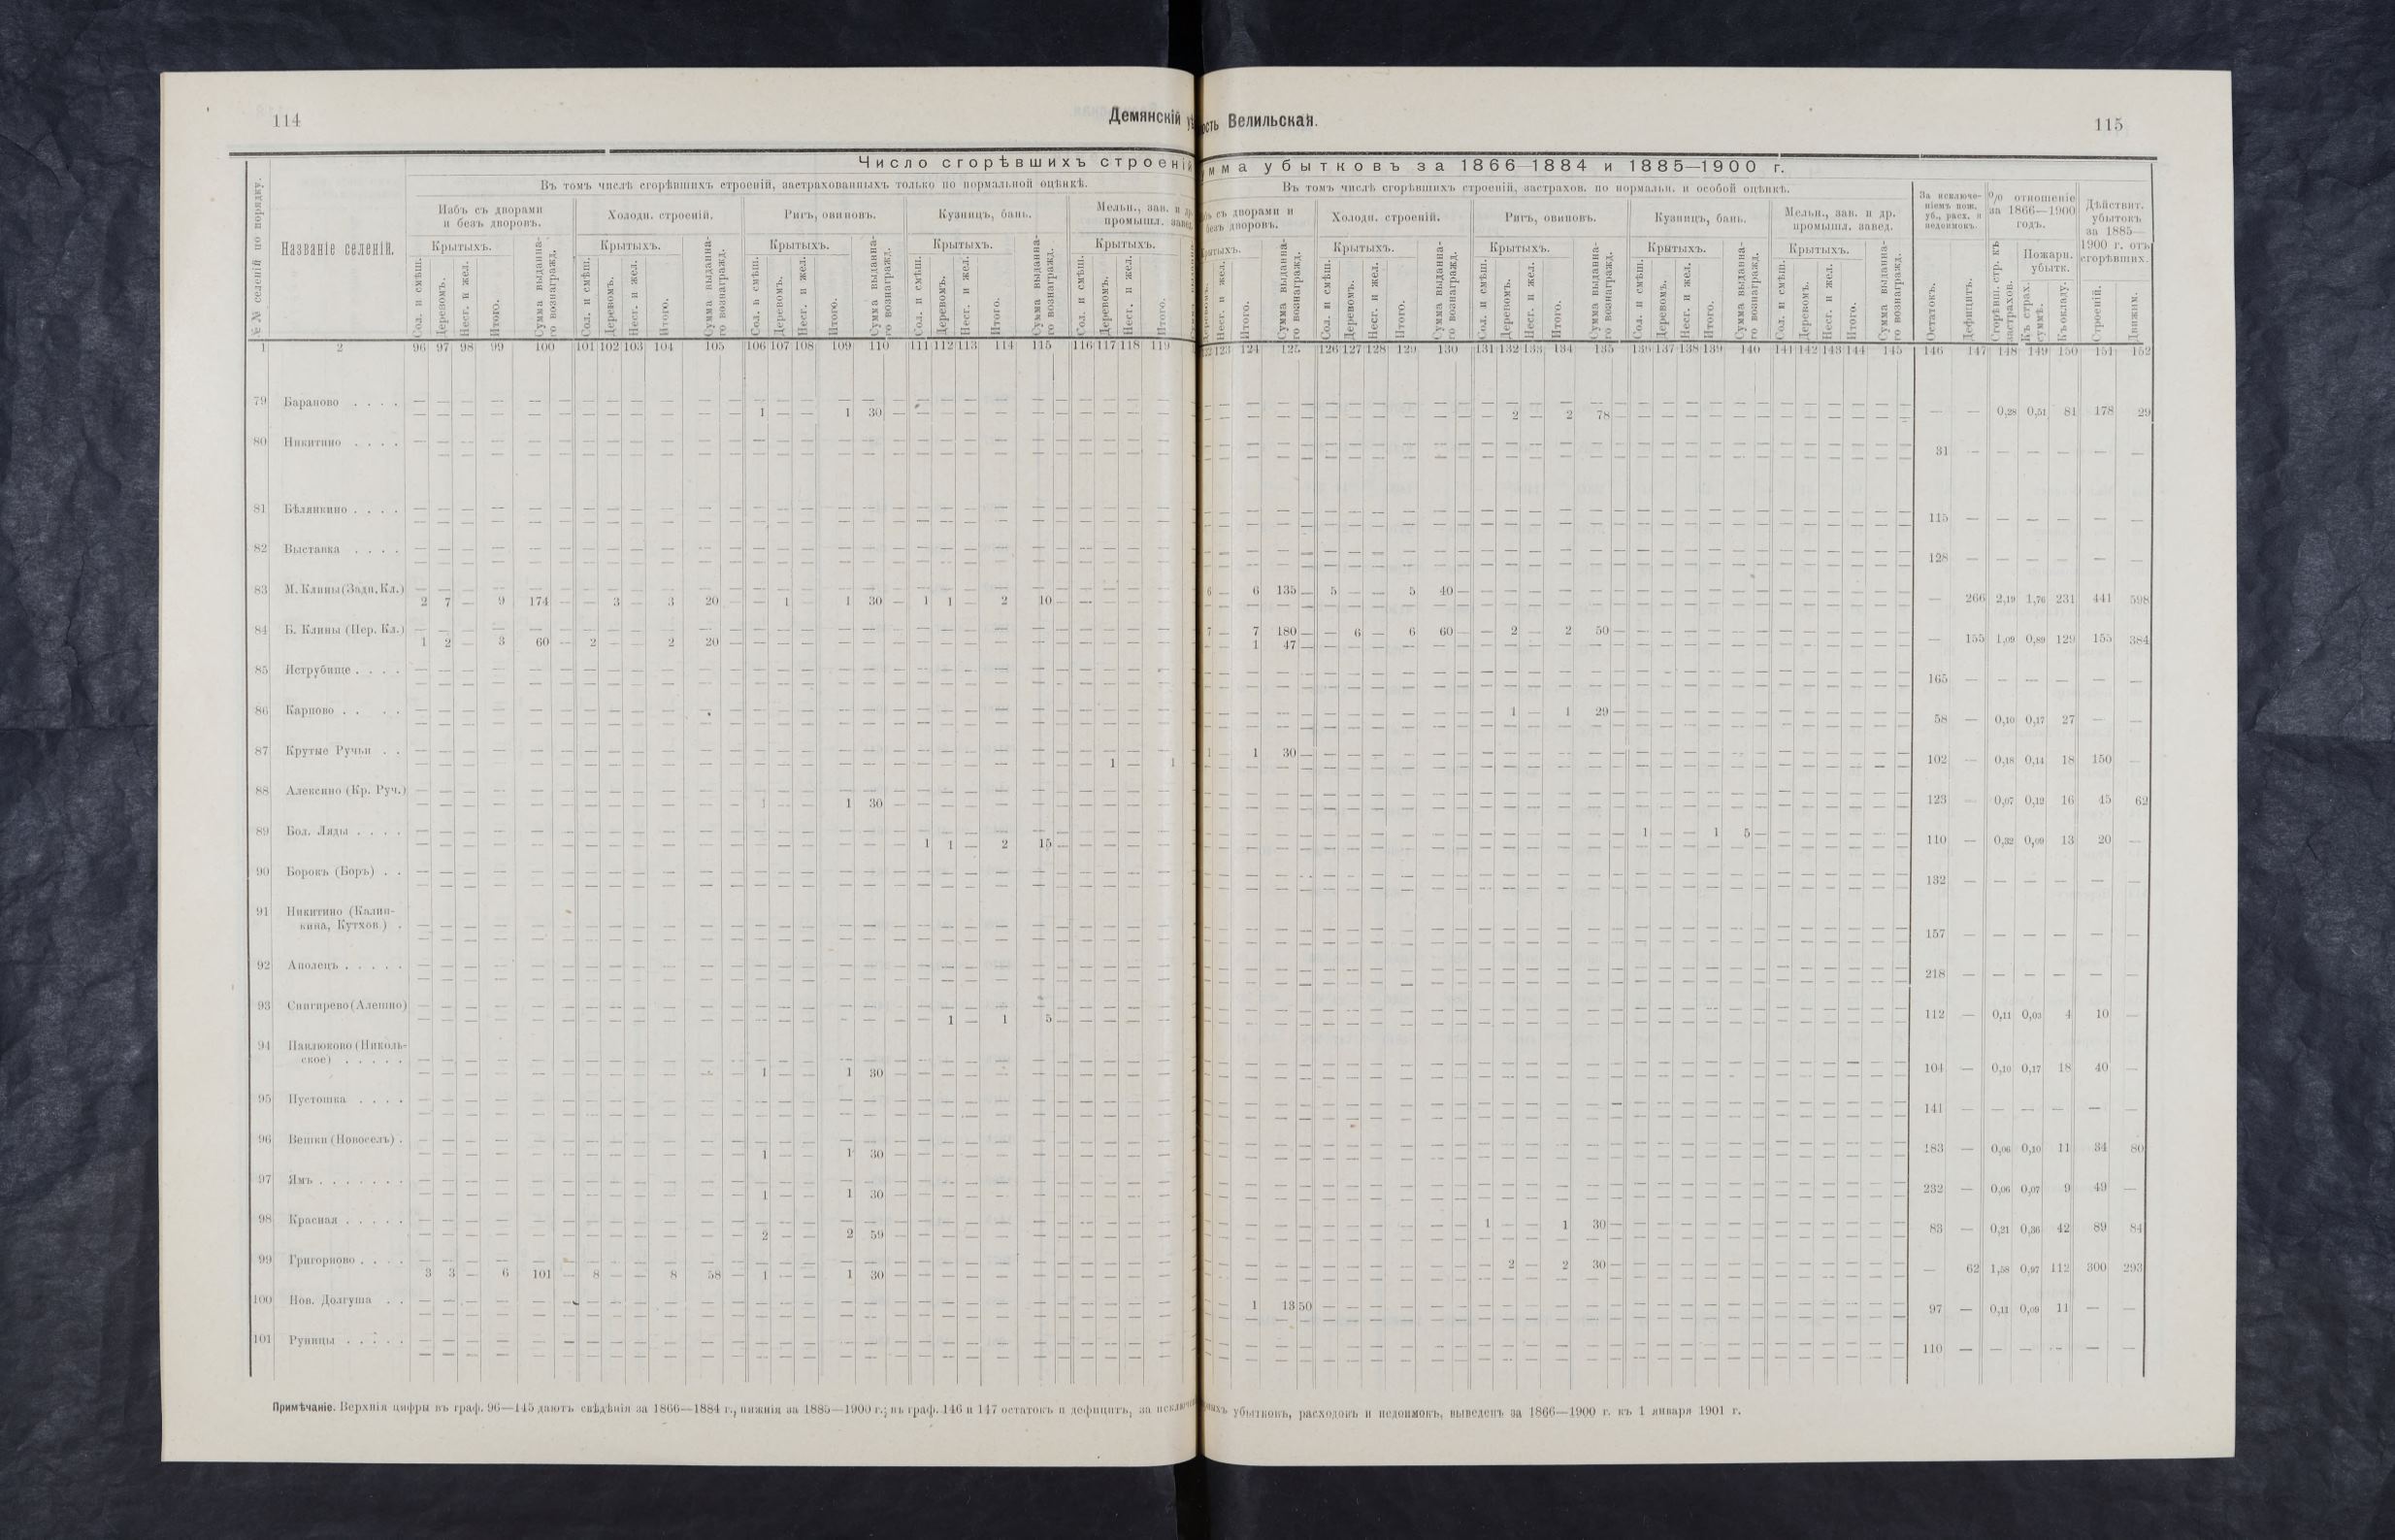 114
Демянскій
Число сгорѣвшихъ строеній
Въ томъ числѣ сгорѣвшихъ строеній, застрахованныхъ только по нормальной оцѣнкѣ.
№№ селеній по порядку.
Названіе селеній.
Избъ съ дворами и безъ дворовъ.
Холодн. строеній.
Ригъ, овиновъ.
Кузницъ, бань.
Мельн., зав. и др. промышл. завед.
Крытыхъ. Крытыхъ. Крытыхъ. Крытыхъ. Крытыхъ.
Сол. и смѣш. Деревомъ. Несг. и жел. Итого. Сумма выданна-го вознагражд.
Сол. и смѣш. Деревомъ. Несг. и жел. Итого. Сумма выданна-го вознагражд.
Сол. и смѣш. Деревомъ. Несг. и жел. Итого. Сумма выданна-го вознагражд.
Сол. и смѣш. Деревомъ. Несг. и жел. Итого. Сумма выданна-го вознагражд.
Сол. и смѣш. Деревомъ. Несг. и жел. Итого.
1 2 96 97 98 99 100 101 102 103 104 105 106 107 108 109 110 111 112 113 114 115 116 117 118 119
79 Бараново . . . .
1 — — 1 30 —
80 Никитино . . . .
81 Бѣлянкино . . . .
82 Выставка . . . .
83 М. Клины (Задн. Кл.)
2 7 — 9 174 — — 3 — 3 20 — — 1 — 1 30 — 1 1 — 2 10 —
84 Б. Клины (Пер. Кл.)
1 2 — 3 60 — 2 — — 2 20 —
85 Иструбище . . . .
86 Карпово . . . .
87 Крутые Ручьи . .
1 — 1
88 Алексино (Кр. Руч.)
1 — — 1 30 —
89 Бол. Ляды . . . .
1 1 — 2 15 —
90 Борокъ (Боръ) . .
91 Никитино (Калин-
кина, Кутхов.) .
92 Аполецъ . . . . .
93 Снигирево (Алешно)
1 — 1 5 —
94 Павлюково (Николь-
ское) . . . . .
1 — — 1 30 —
95 Пустошка . . . .
96 Вешки (Новосель) .
1 — — 1 30 —
97 Ямъ . . . . . . .
1 — — 1 30 —
98 Красная . . . . .
2 — — 2 59 —
99 Григорково . . . .
3 3 — 6 101 — 8 — — 8 58 — 1 — — 1 30 —
100 Нов. Долгуша . .
101 Руницы . . . . .
Примѣчаніе. Верхнія цифры въ граф. 96—145 даютъ свѣдѣнія за 1866—1884 г., нижнія за 1885—1900 г.; въ граф. 146 и 147 остатокъ и дефицитъ, за
Велильская.
115
убытковъ за 1866—1884 и 1885—1900 г.
Въ томъ числѣ сгорѣвшихъ строеній, застрахов. по нормальн. и особой оцѣнкѣ.
съ дворами и безъ дворовъ.
Холодн. строеній.
Ригъ, овиновъ.
Кузницъ, бань.
Мельн., зав. и др. промышл. завед.
За исключе-ніемъ пож. уб., расх. и недоимокъ.
% отношеніе за 1866—1900 годъ.
Дѣйствит. убытокъ за 1885—1900 г. отъ сгорѣвшихъ.
Крытыхъ. Крытыхъ. Крытыхъ. Крытыхъ.
Пожарн. убытк.
Несг. и жел. Итого. Сумма выданна-го вознагражд.
Сол. и смѣш. Деревомъ. Несг. и жел. Итого. Сумма выданна-го вознагражд.
Сол. и смѣш. Деревомъ. Несг. и жел. Итого. Сумма выданна-го вознагражд.
Сол. и смѣш. Деревомъ. Несг. и жел. Итого. Сумма выданна-го вознагражд.
Сол. и смѣш. Деревомъ. Несг. и жел. Итого. Сумма выданна-го вознагражд.
Остатокъ. Дефицитъ. Сгорѣвш. стр. къ застрахов. Къ страх. суммѣ. Къ окладу. Строеній. Движим.
123 124 125 126 127 128 129 130 131 132 133 134 135 136 137 138 139 140 141 142 143 144 145 146 147 148 149 150 151 152
2 — 2 78 —
— — 0,28 0,51 81 178 29
31 — — — — — —
115 — — — — — —
128 — — — — — —
6 — 6 135 — 5 — — 5 40 —
— 266 2,19 1,76 231 441 598
7 — 7 180 — — 6 — 6 60 — — 2 — 2 50 —
— — 1 47 —
— 155 1,09 0,89 129 155 384
165 — — — — — —
1 — 1 29 —
58 — 0,10 0,17 27 — —
1 — 1 30 —
102 — 0,18 0,14 18 150 —
123 — 0,07 0,12 16 45 62
1 — — 1 5 —
110 — 0,32 0,09 13 20 —
132 — — — — — —
157 — — — — — —
218 — — — — — —
112 — 0,11 0,03 4 10 —
104 — 0,10 0,17 18 40 —
141 — — — — — —
183 — 0,06 0,10 11 34 80
232 — 0,06 0,07 9 49 —
1 — — 1 30 —
83 — 0,21 0,36 42 89 84
2 — 2 30 —
— 62 1,58 0,97 112 300 293
1 13 50
97 — 0,11 0,09 11 — —
110 — — — — — —
убытковъ, расходовъ и недоимокъ, выведенъ за 1866—1900 г. къ 1 января 1901 г.